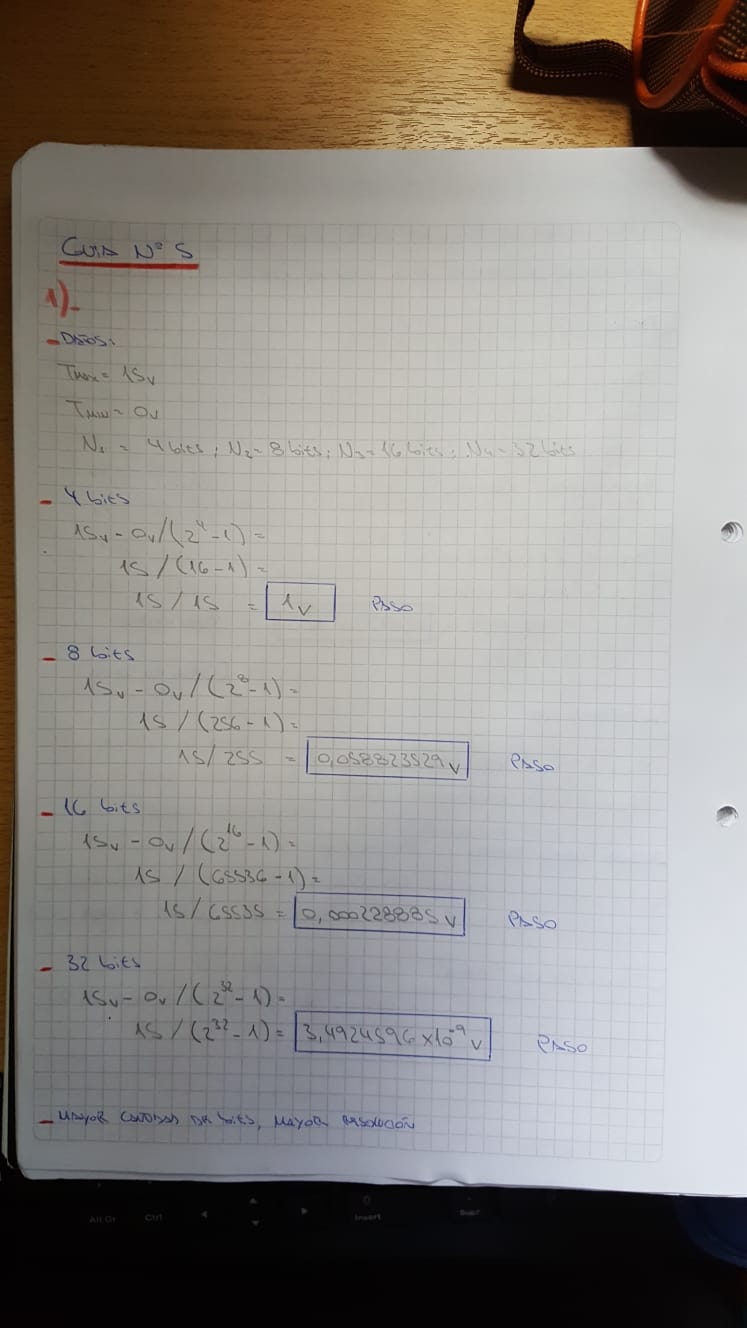 GUIA Nº 5
1)-
- DATOS:
Tmax = 15v
Tmin = 0v
N1 = 4 bits; N2 = 8 bits; N3 = 16 bits; N4 = 32 bits
- 4 bits
15v - 0v/(2^4 - 1) =
15 / (16 - 1) =
15 / 15 = 1v PASO
- 8 bits
15v - 0v / (2^8 - 1) =
15 / (256 - 1) =
15 / 255 = 0,058823529v PASO
- 16 bits
15v - 0v / (2^16 - 1) =
15 / (65536 - 1) =
15 / 65535 = 0,000228885v PASO
- 32 bits
15v - 0v / (2^32 - 1) =
15 / (2^32 - 1) = 3,4924596 x10^-9 v PASO
- MAYOR CANTIDAD DE bits, MAYOR RESOLUCIÓN
Alt Gr Ctrl Insert Supr